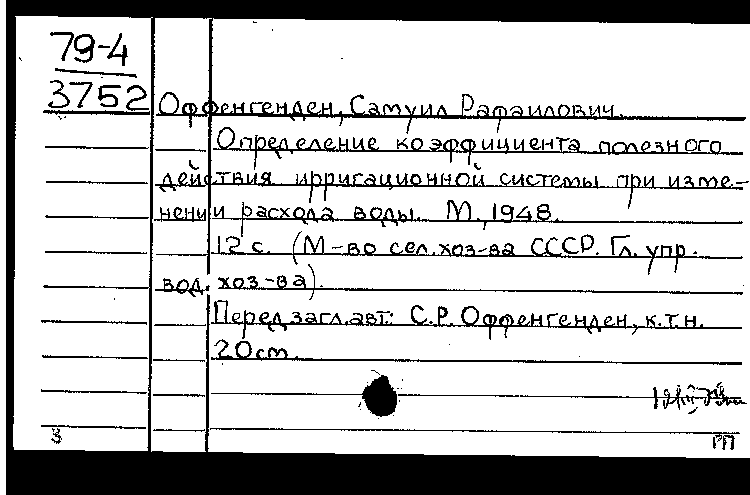 79-4
3752
Оффенгенден, Самуил Рафаилович.
Определение коэффициента полезного
действия ирригационной системы при изме-
нении расхода воды. М., 1948.
12 с. (М-во сел. хоз-ва СССР. Гл. упр.
вод. хоз-ва).
Перед загл. авт: С.Р. Оффенгенден, к.т.н.
20 см.
3
РП